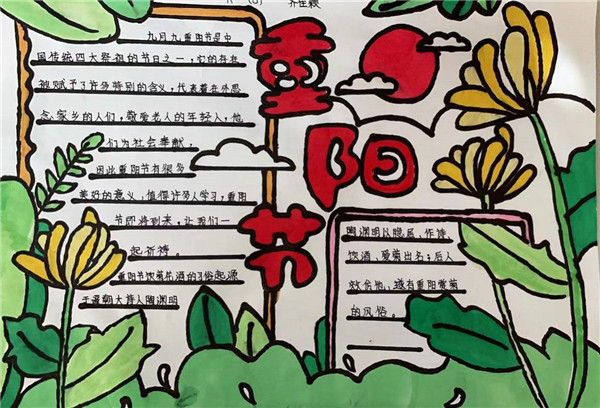 齐佳颖
重阳节
九月九重阳节是中
国传统四大祭祖的节日之一，它的存在
被赋予了许多特别的含义，代表着在外思
念家乡的人们，敬爱老人的年轻人，他
们为社会奉献，
因此重阳节有很多
美好的意义，值得许多人学习，重阳
节即将到来，让我们一
起祈祷。
重阳节饮菊花酒的习俗起源
于晋朝大诗人陶渊明
陶渊明以隐居，作诗
饮酒，爱菊出名；后人
效仿他，越有重阳赏菊
的风俗。